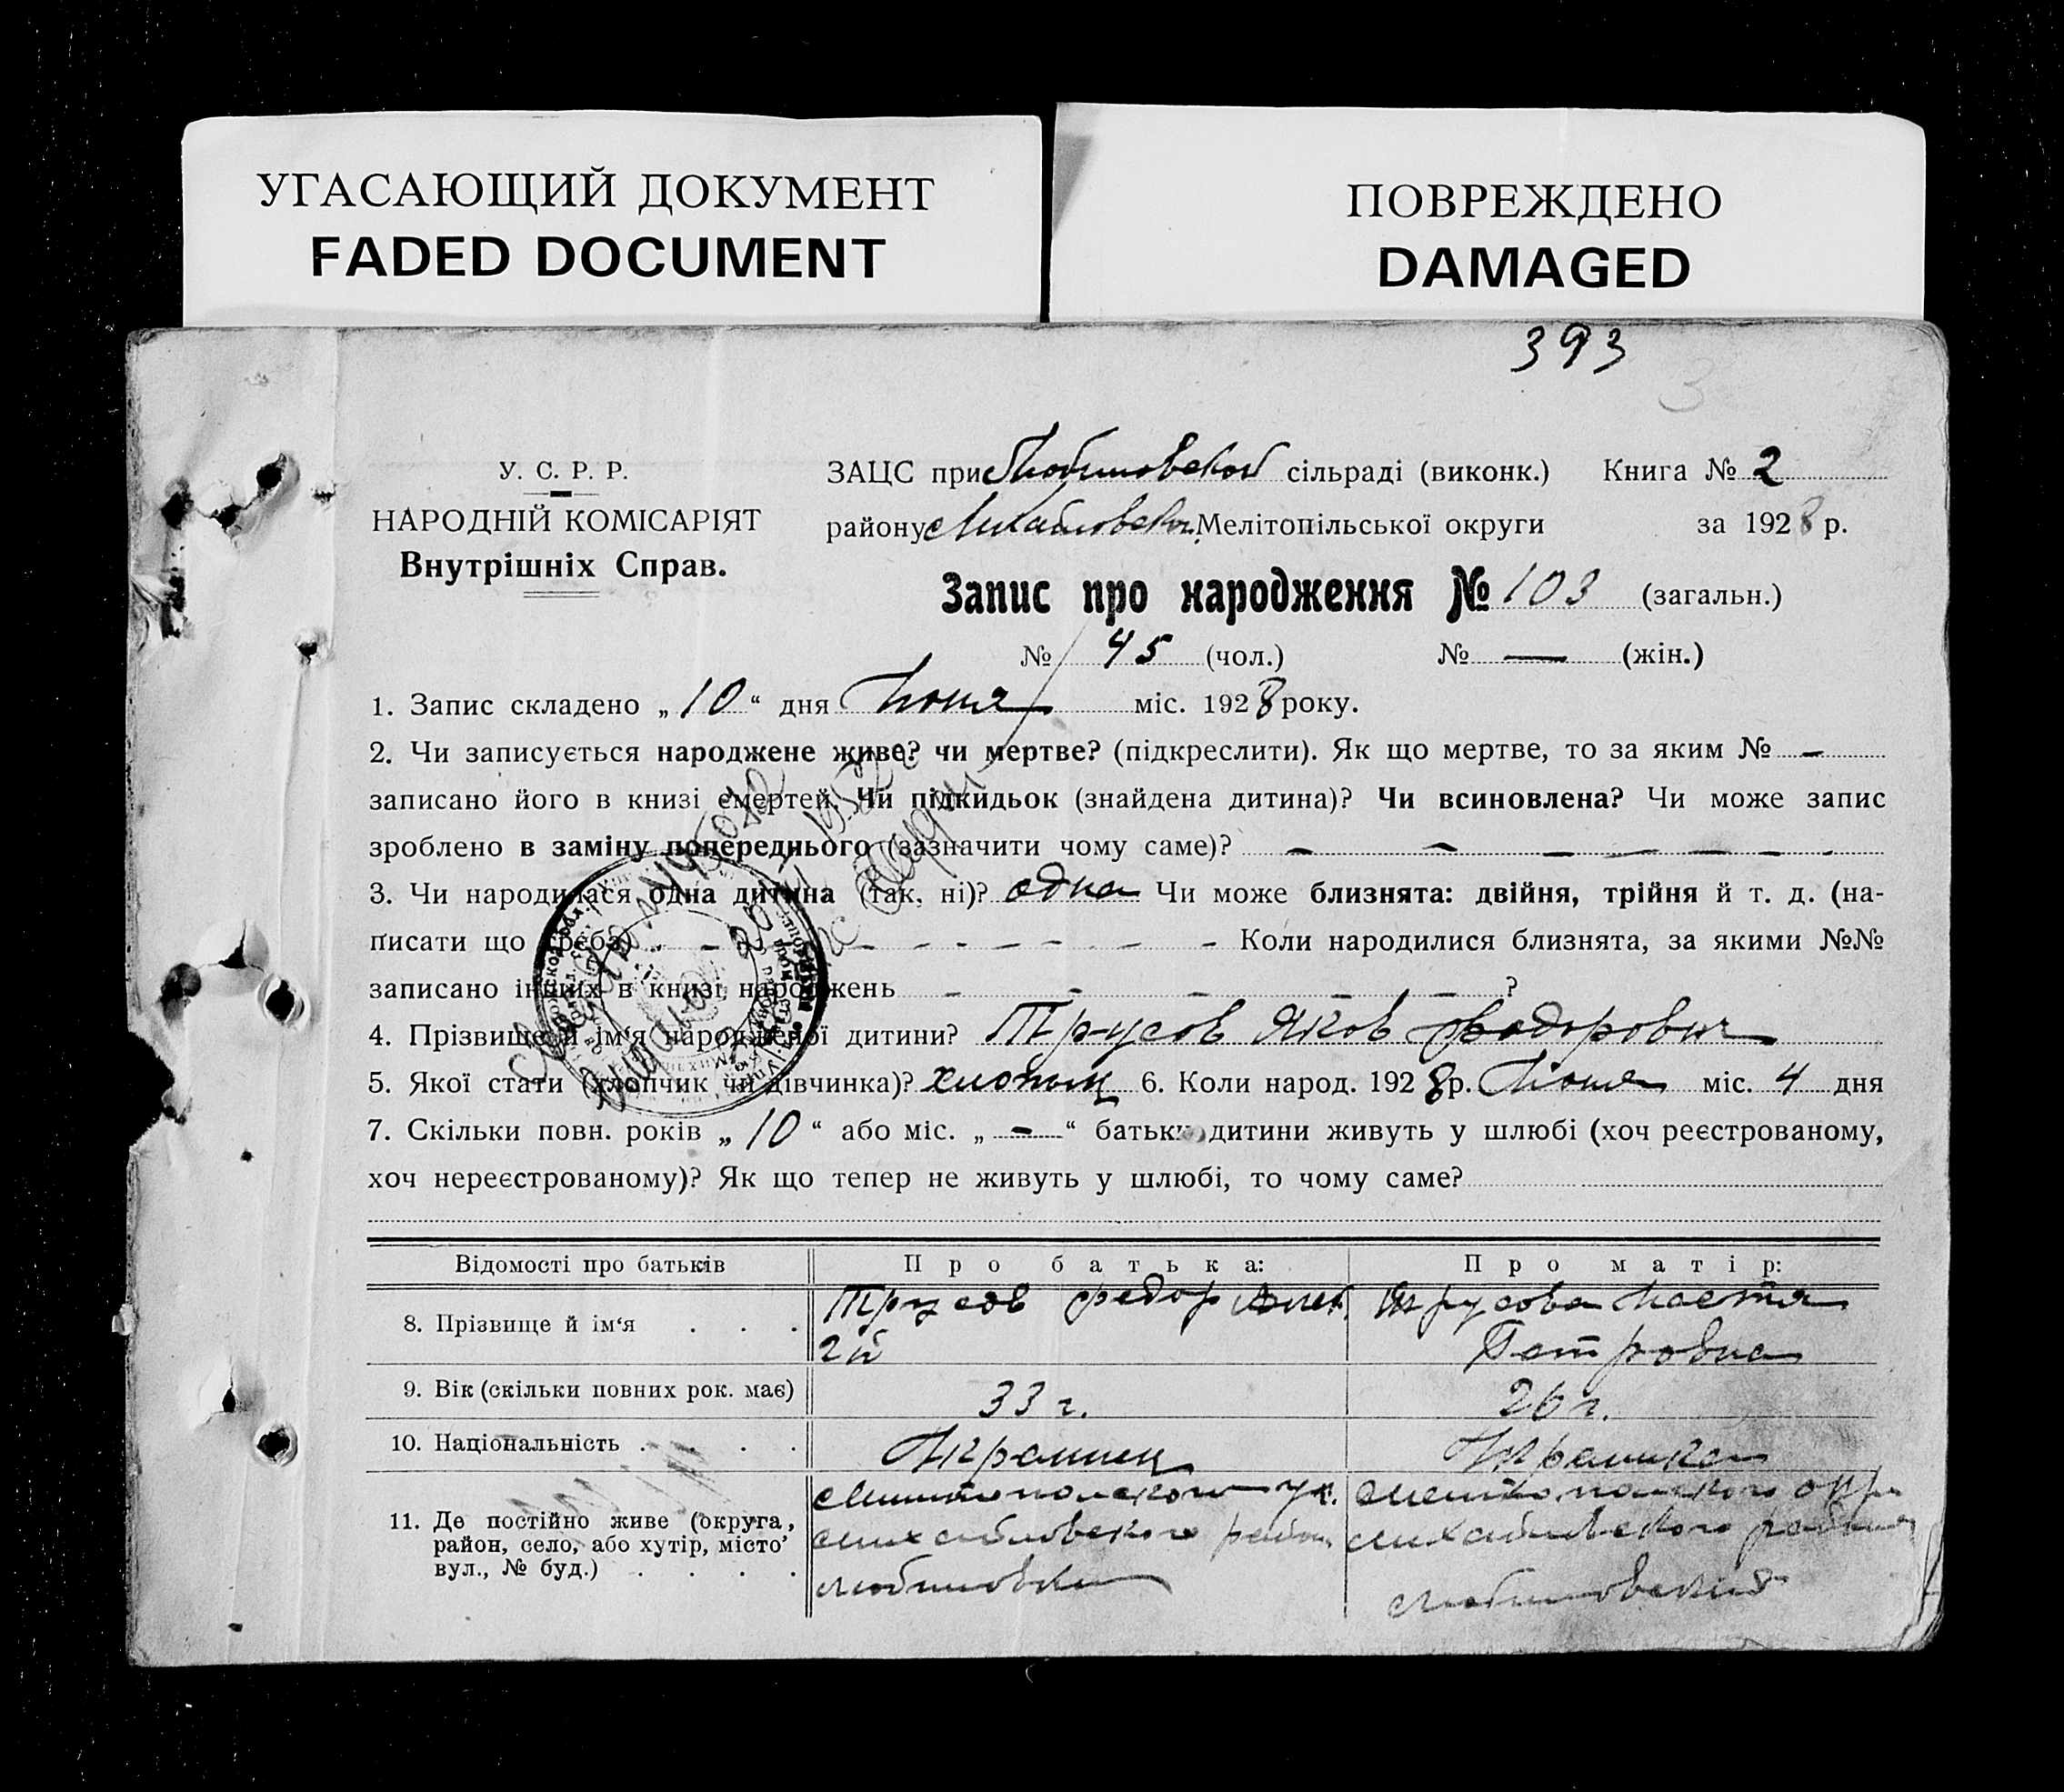 УГАСАЮЩИЙ ДОКУМЕНТ
FADED DOCUMENT
ПОВРЕЖДЕНО
DAMAGED
393
3
У. С. Р. Р.
НАРОДНІЙ КОМІСАРІЯТ
Внутрішніх Справ.
ЗАЦС при Любимовской сільраді (виконк.) Книга № 2
району Михайловском Мелітопільської округи за 1928 р.
Запис про народження № 103 (загальн.)
№ 45 (чол.) № — (жін.)
1. Запис складено „10“ дня Июня міс. 1928 року.
2. Чи записується народжене живе? чи мертве? (підкреслити). Як що мертве, то за яким № —
записано його в книзі смертей. Чи підкидьок (знайдена дитина)? Чи всиновлена? Чи може запис
зроблено в заміну попереднього (зазначити чому саме)? — — — — — — -
3. Чи народилася одна дитина (так, ні)? одна Чи може близнята: двійня, трійня й т. д. (на-
писати що треба) - - - - - - - - - Коли народилися близнята, за якими №№
записано інших в книзі народжень - - - - - ?
4. Прізвище й ім‘я народженої дитини? Трусов Яков Федорович
5. Якої стати (хлопчик чи дівчинка)? хлопец 6. Коли народ. 1928 р. Июня міс. 4 дня
7. Скільки повн. років „10“ або міс. „-“ батьки дитини живуть у шлюбі (хоч реєстрованому,
хоч нереєстрованому)? Як що тепер не живуть у шлюбі, то чому саме?
Відомості про батьків Про батька: Про матір:
8. Прізвище й ім‘я . . . Трусов Федор Трусова Настя
Петровна
9. Вік (скільки повних рок. має) 33 г. 26 г.
10. Національність . . . . Украинец Украинка
11. Де постійно живе (округа, район, село, або хутір, місто вул., № буд.) . . . .
Мелитопольского
Михайловского район
Любимовки
Мелитопольского окру
Михайловского района